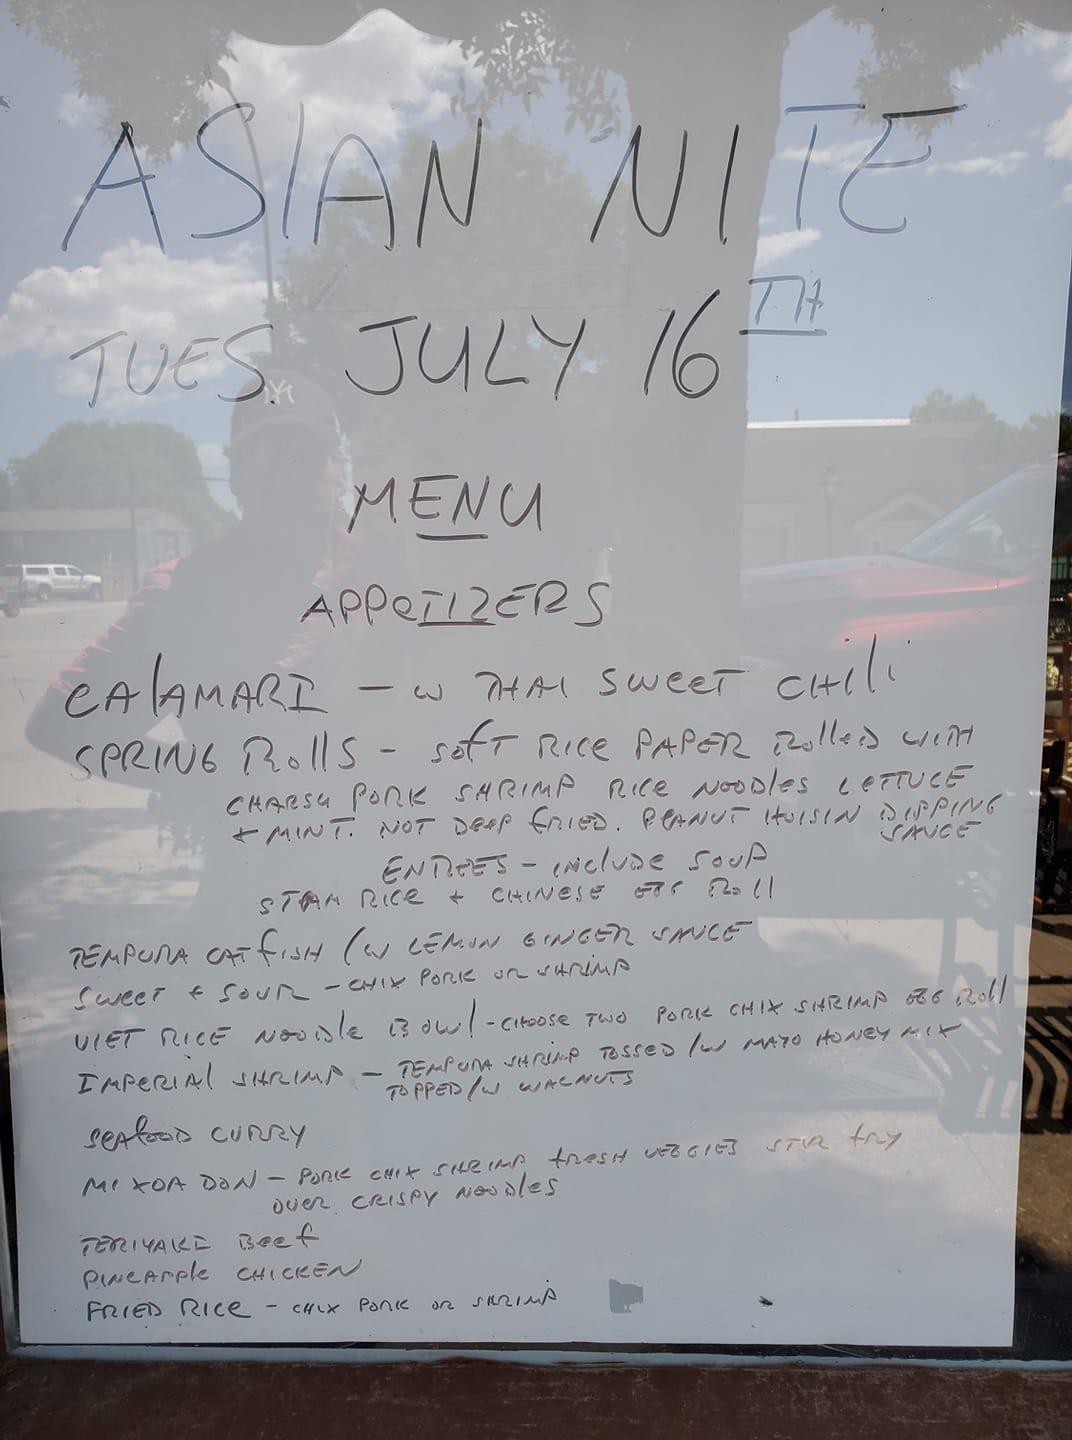 ASIAN NITE
TUES. JULY 16TH
MENU
APPETIZERS
CALAMARI - W THAI SWEET CHILI
SPRING ROLLS - SOFT RICE PAPER ROLLED WITH
CHARSU PORK SHRIMP RICE NOODLES LETTUCE
+ MINT. NOT DEEP FRIED. PEANUT HOISIN DIPPING
SAUCE
ENTREES - INCLUDE SOUP
STEAM RICE + CHINESE EGG ROLL
TEMPURA CATFISH /W LEMON GINGER SAUCE
SWEET + SOUR - CHIX PORK OR SHRIMP
VIET RICE NOODLE BOWL - CHOOSE TWO PORK CHIX SHRIMP EGG ROLL
IMPERIAL SHRIMP - TEMPURA SHRIMP TOSSED /W MAYO HONEY MIX
TOPPED /W WALNUTS
SEAFOOD CURRY
MI XOA DON - PORK CHIX SHRIMP FRESH VEGGIES STIR FRY
OVER CRISPY NOODLES
TERIYAKI BEEF
PINEAPPLE CHICKEN
FRIED RICE - CHIX PORK OR SHRIMP